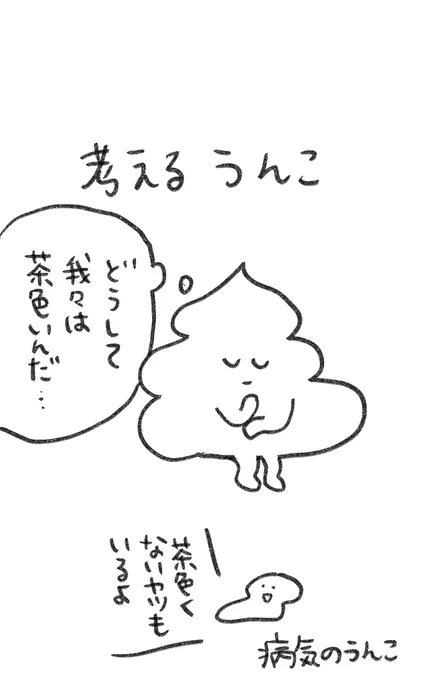 考える うんこ
どうして
我々は
茶色いんだ…
茶色く
ないヤツも
いるよ
病気のうんこ